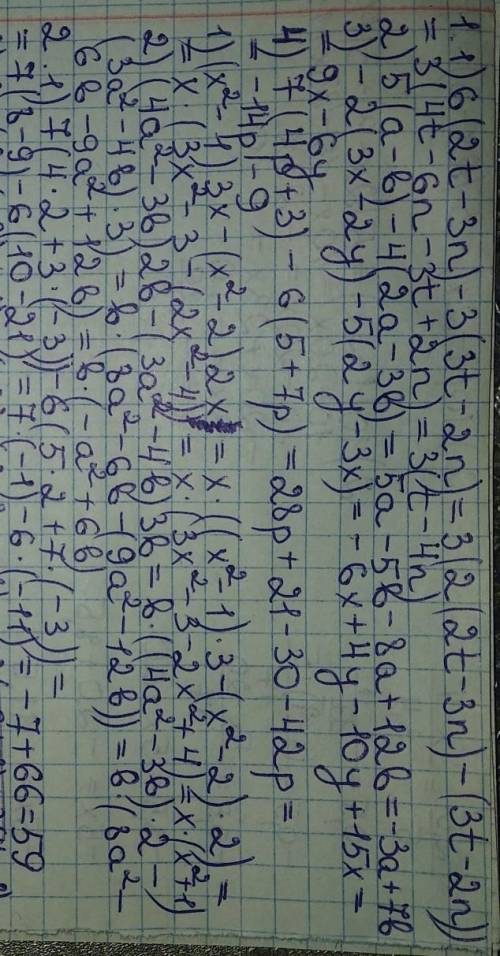 1. 1) 6(2t-3n)-3(3t-2n)=3(2(2t-3n)-(3t-2n))
=3(4t-6n-3t+2n)=3(t-4n)
2) 5(a-b)-4(2a-3b)=5a-5b-8a+12b=-3a+7b
3) -2(3x-2y)-5(2y-3x)=-6x+4y-10y+15x=
=9x-6y
4) 7(4p+3)-6(5+7p)=28p+21-30-42p=
=-14p-9
1) (x²-1)3x-(x²-2)2x=x·((x²-1)·3-(x²-2)·2)=
=x·(3x²-3-(2x²-4))=x·(3x²-3-2x²+4)=x·(x²+1)
2) (4a²-3b)2b-(3a²-4b)3b=b·((4a²-3b)·2-
(3a²-4b)·3)=b·(8a²-6b-(9a²-12b))=b·(8a²-
6b-9a²+12b)=b·(-a²+6b)
2. 1) 7(4·2+3·(-3))-6(5·2+7·(-3))=
=7(8-9)-6(10-21)=7·(-1)-6·(-11)=-7+66=59